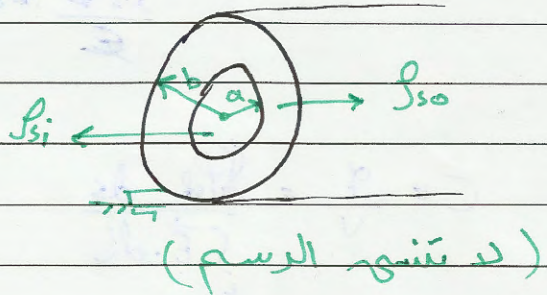 b
a
ρso
ρsi
(لا تنسى الرسم)